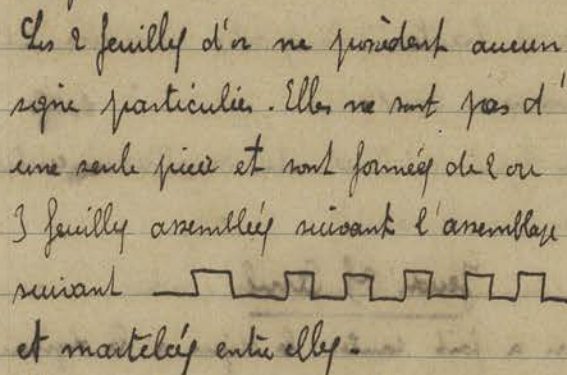 Les 2 feuilles d'or ne possèdent aucun
signe particulier. Elles ne sont pas d'
une seule pièce et sont formées de 2 ou
3 feuilles assemblées suivant l'assemblage
suivant
et martelées entre elles.